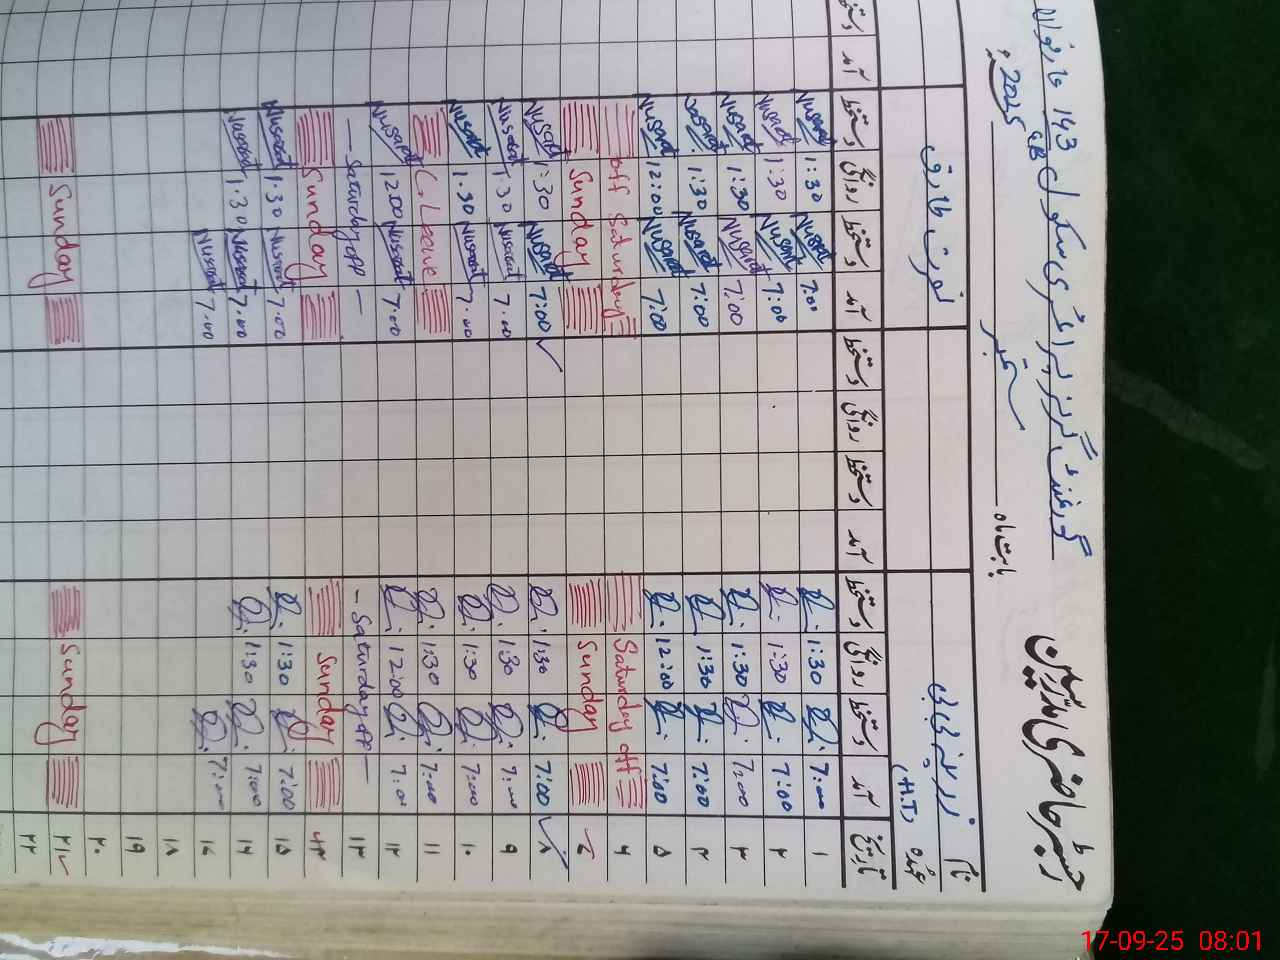 رجسٹر حاضری مدرسین گورنمنٹ گرلز پرائمری سکول 143 GB
بابت ماہ ستمبر 2025ء
نام
عہدہ (H.T)
نصرت طارق
تاریخ آمد دستخط روانگی دستخط آمد دستخط روانگی دستخط آمد دستخط روانگی دستخط آمد دستخط
۱ 7:00 1:30 7:00 Nusrat 1:30 Nusrat
۲ 7:00 1:30 7:00 Nusrat 1:30 Nusrat
۳ 7:00 1:30 7:00 Nusrat 1:30 Nusrat
۴ 7:00 1:30 7:00 Nusrat 1:30 Nusrat
۵ 7:00 12:00 7:00 Nusrat 12:00 Nusrat
۶ Saturday off off Saturday
۷ Sunday Sunday
۸ 7:00 1:30 7:00 Nusrat 1:30 Nusrat
۹ 7:00 1:30 7:00 Nusrat 1:30 Nusrat
۱۰ 7:00 1:30 7:00 Nusrat 1:30 Nusrat
۱۱ 7:00 1:30 C. Leave
۱۲ 7:00 12:00 7:00 Nusrat 12:00 Nusrat
۱۳ - Saturday off - - Saturday off -
۱۴ Sunday Sunday
۱۵ 7:00 1:30 7:00 Nusrat 1:30 Nusrat
۱۶ 7:00 1:30 7:00 Nusrat 1:30 Nusrat
۱۷ 7:00 7:00 Nusrat
۱۸
۱۹
۲۰
۲۱ Sunday Sunday
۲۲
17-09-25 08:01